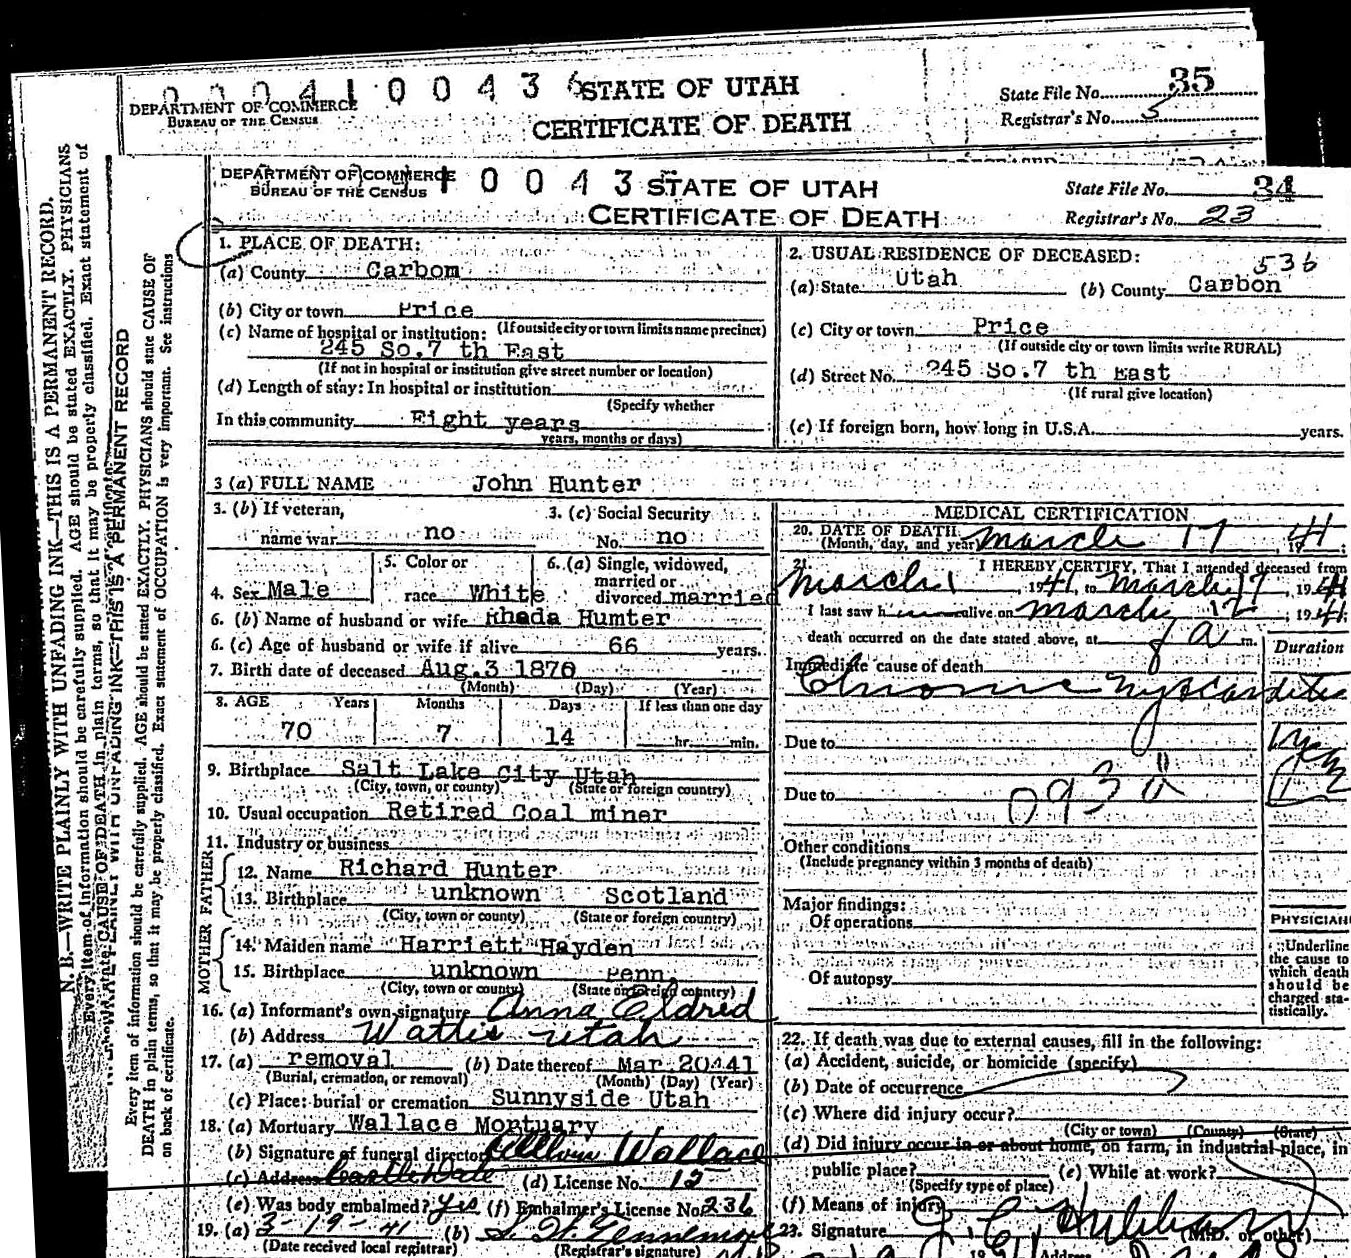 0 0 0 4 1 0 0 4 3 6
DEPARTMENT OF COMMERCE
BUREAU OF THE CENSUS
STATE OF UTAH
CERTIFICATE OF DEATH
State File No. 35
Registrar's No. 5
DEPARTMENT OF COMMERCE
BUREAU OF THE CENSUS
1 0 0 4 3
STATE OF UTAH
CERTIFICATE OF DEATH
State File No. 34
Registrar's No. 23
N. B.—WRITE PLAINLY WITH UNFADING INK—THIS IS A PERMANENT RECORD.
Every item of information should be carefully supplied. AGE should be stated EXACTLY. PHYSICIANS
should state CAUSE OF DEATH in plain terms, so that it may be properly classified. Exact statement of
WRITE PLAINLY WITH UNFADING INK—THIS IS A PERMANENT RECORD
Every item of information should be carefully supplied. AGE should be stated EXACTLY. PHYSICIANS should state CAUSE OF
DEATH in plain terms, so that it may be properly classified. Exact statement of OCCUPATION is very important. See instructions
on back of certificate.
1. PLACE OF DEATH:
(a) County Carbom
(b) City or town Price
(If outside city or town limits name precinct)
(c) Name of hospital or institution:
245 So.7 th East
(If not in hospital or institution give street number or location)
(d) Length of stay: In hospital or institution
(Specify whether
In this community Eight years
years, months or days)
2. USUAL RESIDENCE OF DECEASED:
536
(a) State Utah (b) County Carbon
(c) City or town Price
(If outside city or town limits write RURAL)
(d) Street No. 245 So.7 th East
(If rural give location)
(e) If foreign born, how long in U.S.A. years.
3 (a) FULL NAME John Hunter
3. (b) If veteran,
name war no
3. (c) Social Security
No. no
4. Sex Male
5. Color or
race White
6. (a) Single, widowed,
married or
divorced married
6. (b) Name of husband or wife Rhada Humter
6. (c) Age of husband or wife if alive 66 years.
7. Birth date of deceased Aug.3 1870
(Month) (Day) (Year)
8. AGE Years Months Days If less than one day
70 7 14 hr. min.
9. Birthplace Salt Lake City Utah
(City, town, or county) (State or foreign country)
10. Usual occupation Retired Coal miner
11. Industry or business
FATHER
12. Name Richard Hunter
13. Birthplace unknown Scotland
(City, town or county) (State or foreign country)
MOTHER
14. Maiden name Harriett Hayden
15. Birthplace unknown Penn.
(City, town or county) (State or foreign country)
16. (a) Informant's own signature Anna Eldred
(b) Address Wattis Utah
17. (a) removal (b) Date thereof Mar 20 41
(Burial, cremation, or removal) (Month) (Day) (Year)
(c) Place: burial or cremation Sunnyside Utah
18. (a) Mortuary Wallace Mortuary
(b) Signature of funeral director Wallace
(c) Address Castle Dale (d) License No. 15
(e) Was body embalmed? Yes (f) Embalmer's License No. 236
19. (a) 3-19-41 (b)
(Date received local registrar) (Registrar's signature)
MEDICAL CERTIFICATION
20. DATE OF DEATH
(Month, day, and year) March 17, 1941
21. I HEREBY CERTIFY, That I attended deceased from
March 1, 1941, to March 17, 1941
I last saw him alive on March 12, 1941
death occurred on the date stated above, at 8 a m.
Duration
Immediate cause of death
Chronic Myocarditis
Due to
Due to
093
Other conditions
(Include pregnancy within 3 months of death)
Major findings:
Of operations
Of autopsy
PHYSICIAN
Underline
the cause to
which death
should be
charged sta-
tistically.
22. If death was due to external causes, fill in the following:
(a) Accident, suicide, or homicide (specify)
(b) Date of occurrence
(c) Where did injury occur?
(City or town) (County) (State)
(d) Did injury occur in or about home, on farm, in industrial place, in
public place? (e) While at work?
(Specify type of place)
(f) Means of injury
23. Signature J. C. Hubbard
(M.D. or other)
Address